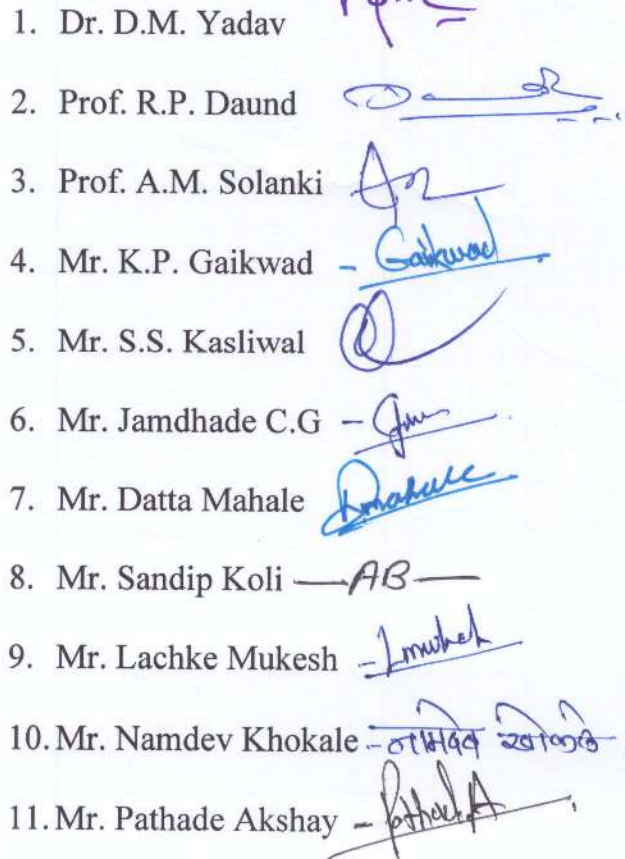 1. Dr. D.M. Yadav
2. Prof. R.P. Daund
3. Prof. A.M. Solanki
4. Mr. K.P. Gaikwad - Gaikwad
5. Mr. S.S. Kasliwal
6. Mr. Jamdhade C.G -
7. Mr. Datta Mahale Dmahale
8. Mr. Sandip Koli —AB—
9. Mr. Lachke Mukesh - Lmukesh
10. Mr. Namdev Khokale - नामदेव खोकले
11. Mr. Pathade Akshay - PathadeA